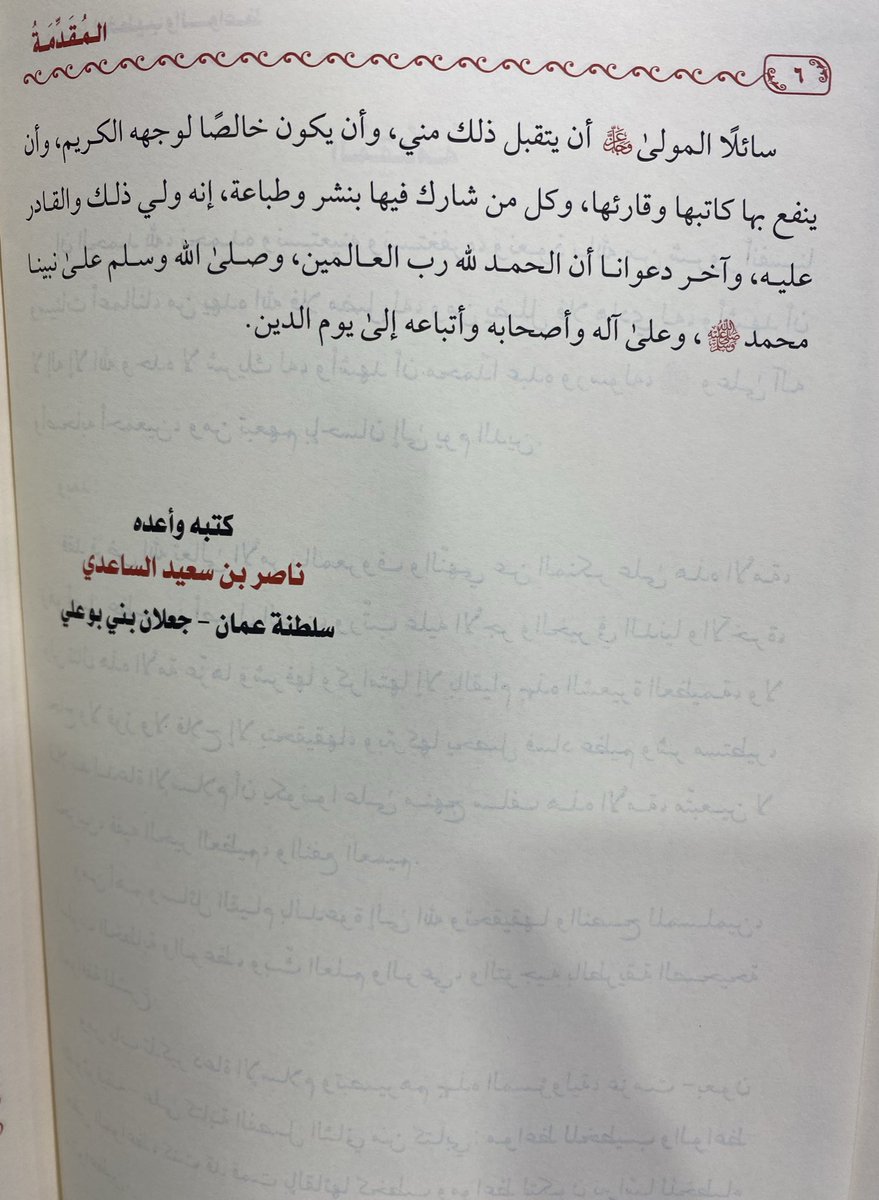 المُقَدِّمَةُ
٦
سائلًا المولىٰ ﷻ أن يتقبل ذلك مني، وأن يكون خالصًا لوجهه الكريم، وأن
ينفع بها كاتبها وقارئها، وكل من شارك فيها بنشر وطباعة، إنه ولي ذلك والقادر
عليه، وآخر دعوانا أن الحمد لله رب العالمين، وصلىٰ الله وسلم علىٰ نبينا
محمد ﷺ، وعلىٰ آله وأصحابه وأتباعه إلىٰ يوم الدين.
كتبه وأعده
ناصر بن سعيد الساعدي
سلطنة عمان - جعلان بني بو علي